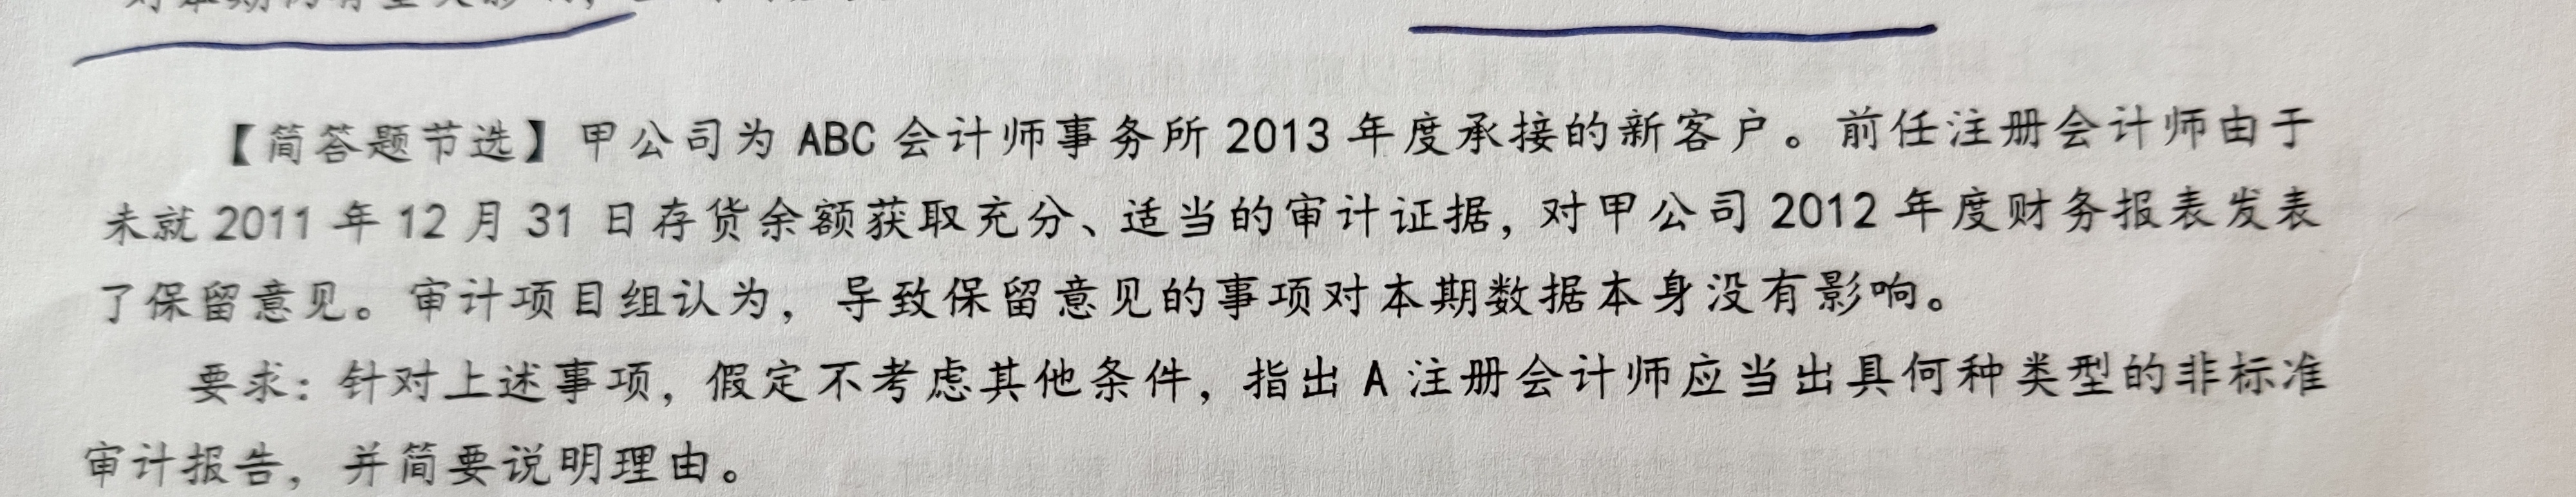 【简答题节选】甲公司为 ABC 会计师事务所 2013 年度承接的新客户。前任注册会计师由于
未就 2011 年 12 月 31 日存货余额获取充分、适当的审计证据，对甲公司 2012 年度财务报表发表
了保留意见。审计项目组认为，导致保留意见的事项对本期数据本身没有影响。
要求：针对上述事项，假定不考虑其他条件，指出 A 注册会计师应当出具何种类型的非标准
审计报告，并简要说明理由。